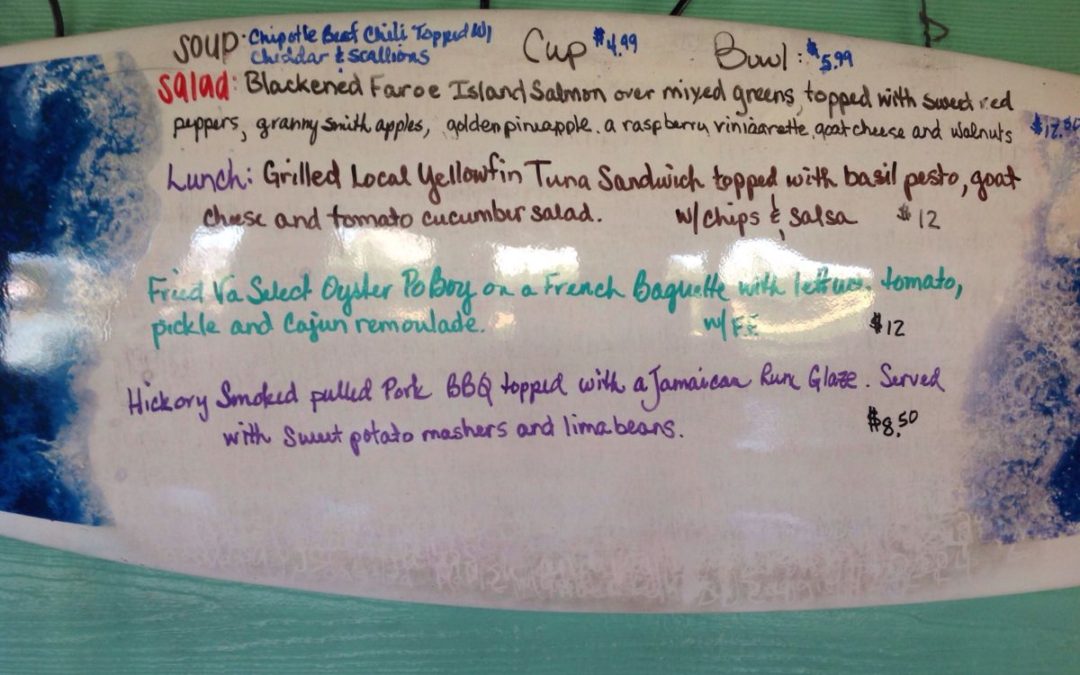 SOUP: Chipotle Beef Chili Topped W/ Cup $4.99 Bowl: $5.99
Cheddar & Scallions
Salad: Blackened Faroe Island Salmon over mixed greens, topped with sweet red
peppers, granny smith apples, golden pineapple. a raspberry viniaarette, goat cheese and walnuts
Lunch: Grilled Local Yellowfin Tuna Sandwich topped with basil pesto, goat
cheese and tomato cucumber salad. w/chips & salsa $12
Fried Va Select Oyster Po Boy on a French Baguette with lettuce, tomato,
pickle and Cajun remoulade. w/FF $12
Hickory Smoked pulled Pork BBQ topped with a Jamaican Rum Glaze. Served
with sweet potato mashers and lima beans. $8.50